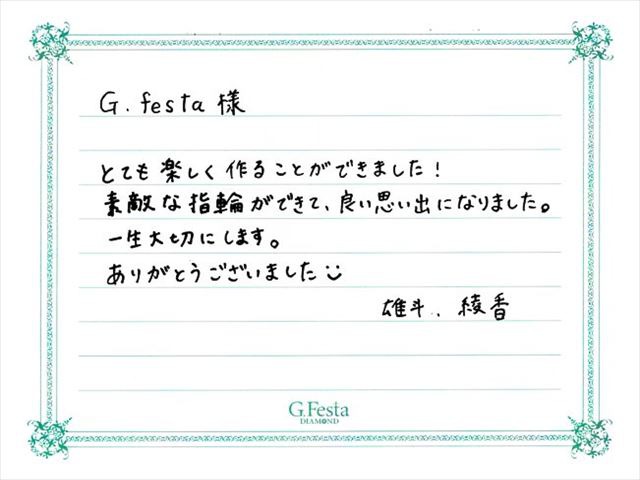 G.festa 様
とても楽しく作ることができました!
素敵な指輪ができて、良い思い出になりました。
一生大切にします。
ありがとうございました
雄斗、綾香
G.Festa
DIAMOND